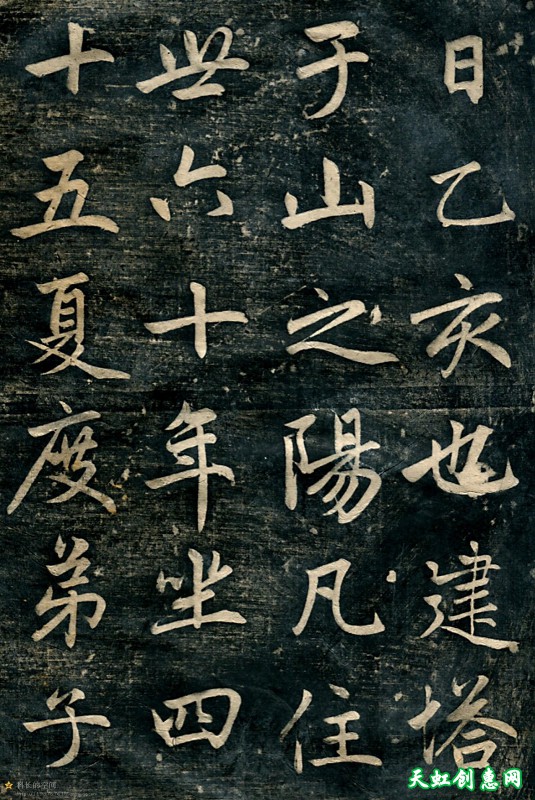 日乙亥也建塔
于山之陽凡住
世六十年坐四
十五夏度弟子
天虹创惠网